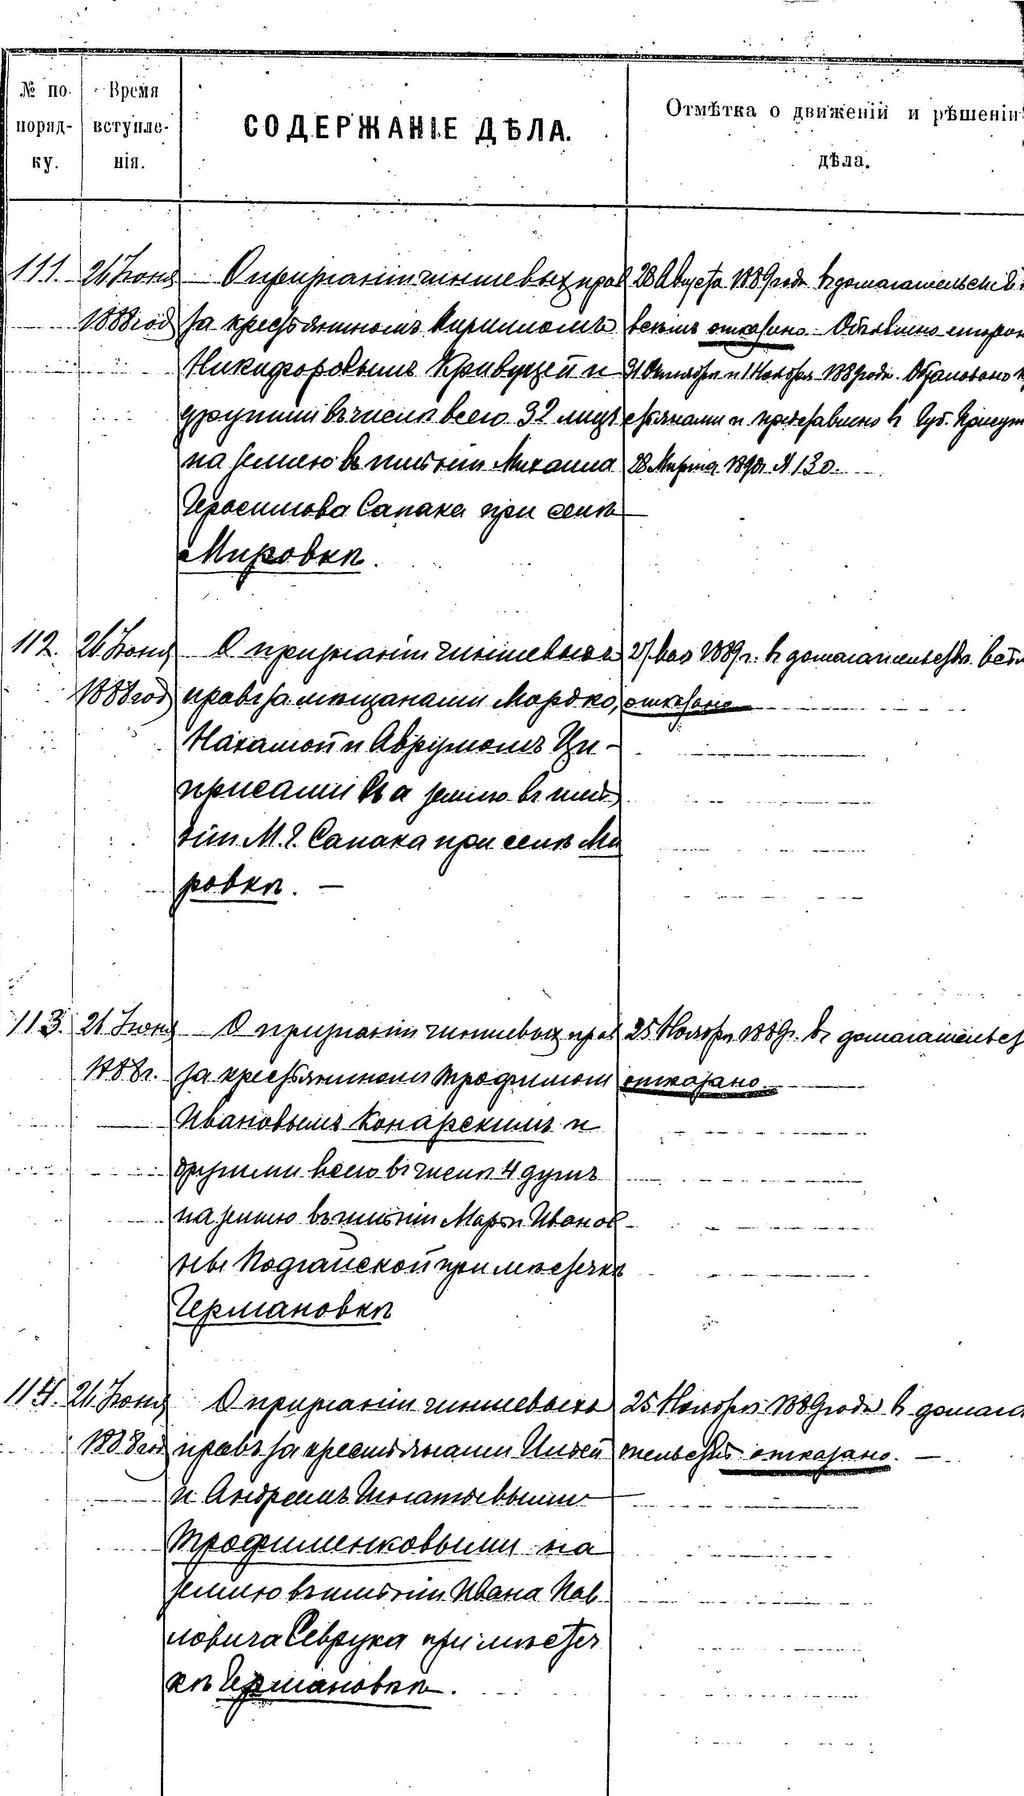 № по поряд- ку.
Время вступле- нія.
СОДЕРЖАНІЕ ДѢЛА.
Отмѣтка о движеній и рѣшеніи
дѣла.
111.
21 Іюня
1888 год
О признаніи чиншевыхъ прав
за крестьяниномъ Кирилломъ
Никифоровымъ Кривущей и
другими въ числѣ всего 32 лицъ
на землю въ имѣніи Михаила
Герасимова Сапака при селѣ
Мировкѣ.
28 Августа 1889 года въ домагательствѣ
всѣмъ отказано. Объявлено
31 Октября и 1 Ноября 1889 года. Обжаловано
и представлено въ Губ. Присут
28 Марта 1890 г. № 130.
112.
21 Іюня
1888 год
О признаніи чиншевыхъ
правъ за мещанами Мордко,
Нахамой и Аврумомъ Ци-
присами на землю въ имѣ
ніи М. Г. Сапака при селѣ Ми
ровкѣ. —
27 Мая 1889 г. въ домагательствѣ всѣм
отказано
113.
21 Іюня
1888 г.
О признаніи чиншевыхъ прав
за крестьяниномъ Трофимом
Ивановымъ Конарскимъ и
другими всего въ числѣ 4 душъ
на землю въ имѣніи Марѳи Иванов
ны Подгайской при мѣстечкѣ
Германовкѣ
25 Ноября 1889 г. въ домагательст
отказано.
114.
21 Іюня
1888 год
О признаніи чиншевыхъ
правъ за крестьянами
и Андреемъ Игнатьевыми
Трофименковыми на
землю въ имѣніи Ивана Пав
ловича Севрука при мѣстеч
кѣ Германовкѣ.
25 Ноября 1889 года въ домага
тельствѣ отказано. —